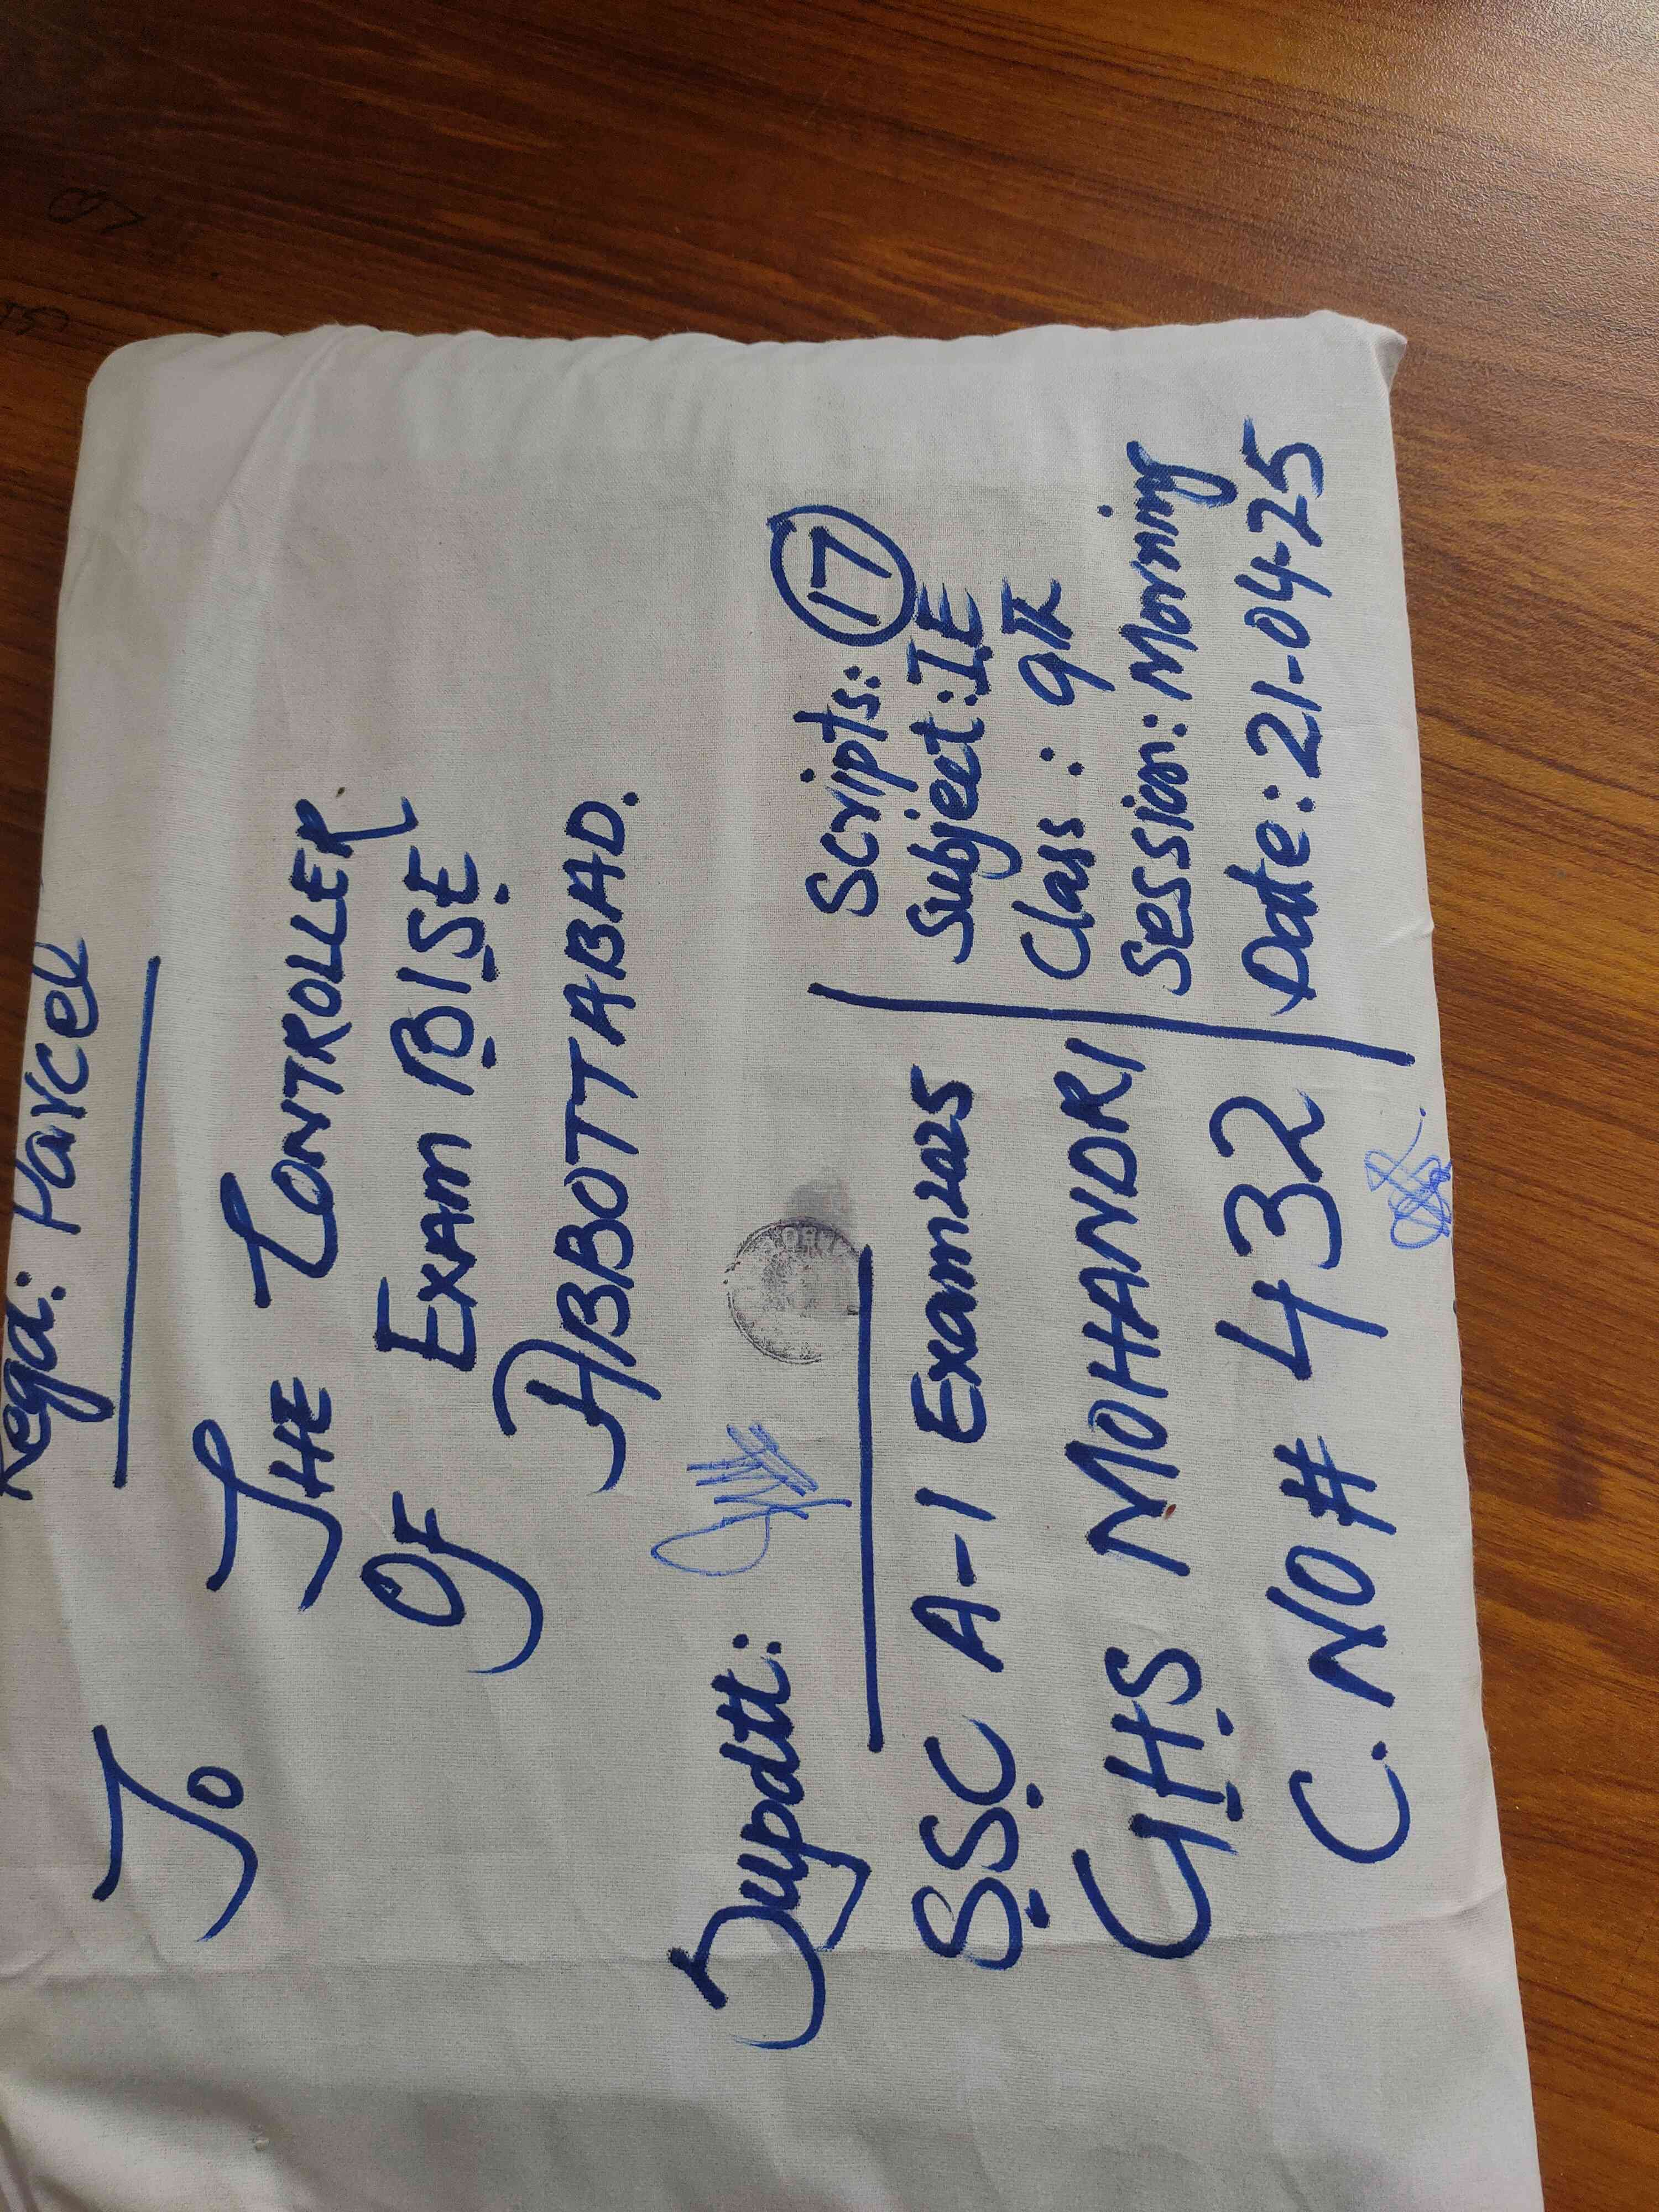 Regd: Parcel
To
THE CONTROLLER
OF EXAM B.I.S.E
ABBOTTABAD.
Supdtt:
SSC A-I Exam 2025
G.H.S MOHANDRI
C. NO # 432
Scripts: 17
Subject: I.E
Class: 9th
Session: Morning
Date: 21-04-25